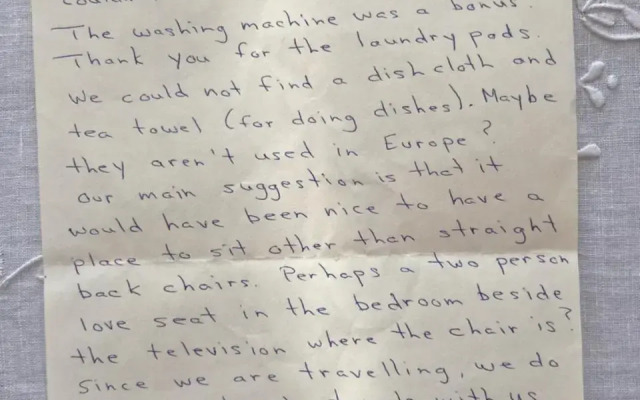 The washing machine was a bonus.
Thank you for the laundry pods.
We could not find a dish cloth and
tea towel (for doing dishes). Maybe
they aren't used in Europe?
Our main suggestion is that it
would have been nice to have a
place to sit other than straight
back chairs. Perhaps a two person
love seat in the bedroom beside
the television where the chair is?
Since we are travelling, we do
with us